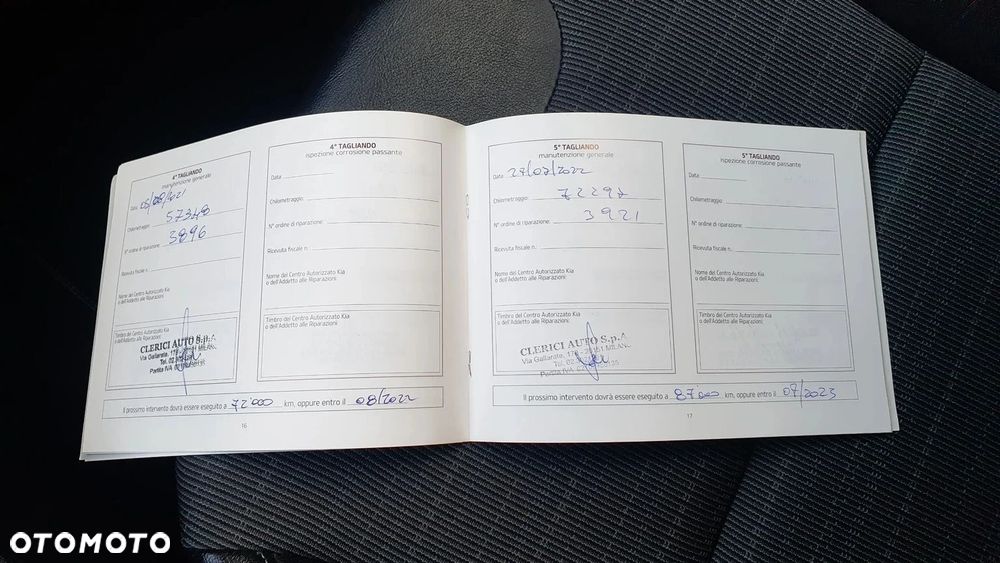 4° TAGLIANDO
manutenzione generale
Data 08/08/2021
Chilometraggio: 57348
N° ordine di riparazione: 3896
Ricevuta fiscale n.:
Nome del Centro Autorizzato Kia
o dell'Addetto alle Riparazioni:
Timbro del Centro Autorizzato Kia
o dell'Addetto alle Riparazioni:
CLERICI AUTO S.p.A.
Via Gallarate, 179 - 20151 MILAN
Tel. 02
Partita IVA
4° TAGLIANDO
ispezione corrosione passante
Data
Chilometraggio:
N° ordine di riparazione:
Ricevuta fiscale n.:
Nome del Centro Autorizzato Kia
o dell'Addetto alle Riparazioni:
Timbro del Centro Autorizzato Kia
o dell'Addetto alle Riparazioni:
Il prossimo intervento dovrà essere eseguito a 72'000 km, oppure entro il 08/2022
16
5° TAGLIANDO
manutenzione generale
Data 27/07/2022
Chilometraggio: 72297
N° ordine di riparazione: 3921
Ricevuta fiscale n.:
Nome del Centro Autorizzato Kia
o dell'Addetto alle Riparazioni:
Timbro del Centro Autorizzato Kia
o dell'Addetto alle Riparazioni:
CLERICI AUTO S.p.A.
Via Gallarate, 179 - 20151 MILAN
Tel. 02
Partita IVA
5° TAGLIANDO
ispezione corrosione passante
Data
Chilometraggio:
N° ordine di riparazione:
Ricevuta fiscale n.:
Nome del Centro Autorizzato Kia
o dell'Addetto alle Riparazioni:
Timbro del Centro Autorizzato Kia
o dell'Addetto alle Riparazioni:
Il prossimo intervento dovrà essere eseguito a 87000 km, oppure entro il 07/2023
17
OTOMOTO